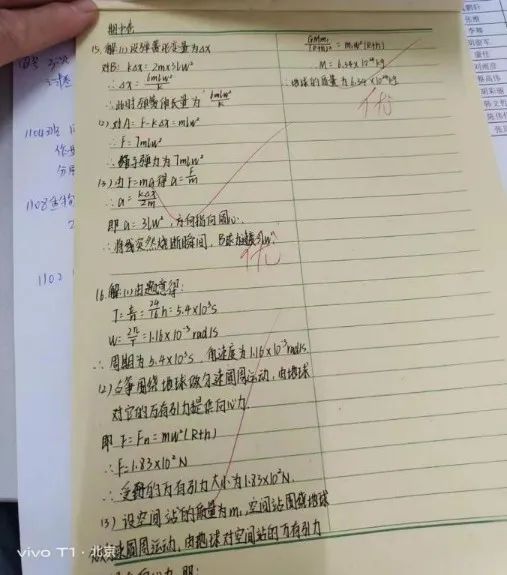 期中卷
15.解(1)设弹簧形变量为Δx
对B: kΔx=2m×3lw²
∴Δx=6mlw²/k
∴此时弹簧伸长量为6mlw²/k
(2)对A: F-kΔx=mlw²
∴F=7mlw²
∴绳子弹力为7mlw²
(3)由F=ma得a=F/m
∴a=kΔx/2m
即a=3lw²,方向指向圆心.
∴将线突然烧断瞬间,B球加速3lw²
优
16.解(1)由题意得:
T=t/n=24/16h=5.4×10³s
w=2π/T=1.16×10⁻³rad/s
∴周期为5.4×10³s,角速度为1.16×10⁻³rad/s.
(2)占筝围绕地球做匀速圆周运动,由地球
对它的万有引力提供向心力.
即F=Fn=mw²(R+h)
∴F=1.83×10²N
∴受到的万有引力大小为1.83×10²N.
(3)设空间站的质量为m₁,空间站围绕地球
做匀速圆周运动,由地球对空间站的万有引力
GMm₁/(R+h)²=m₁w²(R+h)
M=6.34×10²⁴kg
∴地球的质量为6.34×10²⁴kg
优
张雅
李娜
蔡高伟
胡彩丽
韩文哲
陈伟
vivo T1·北京